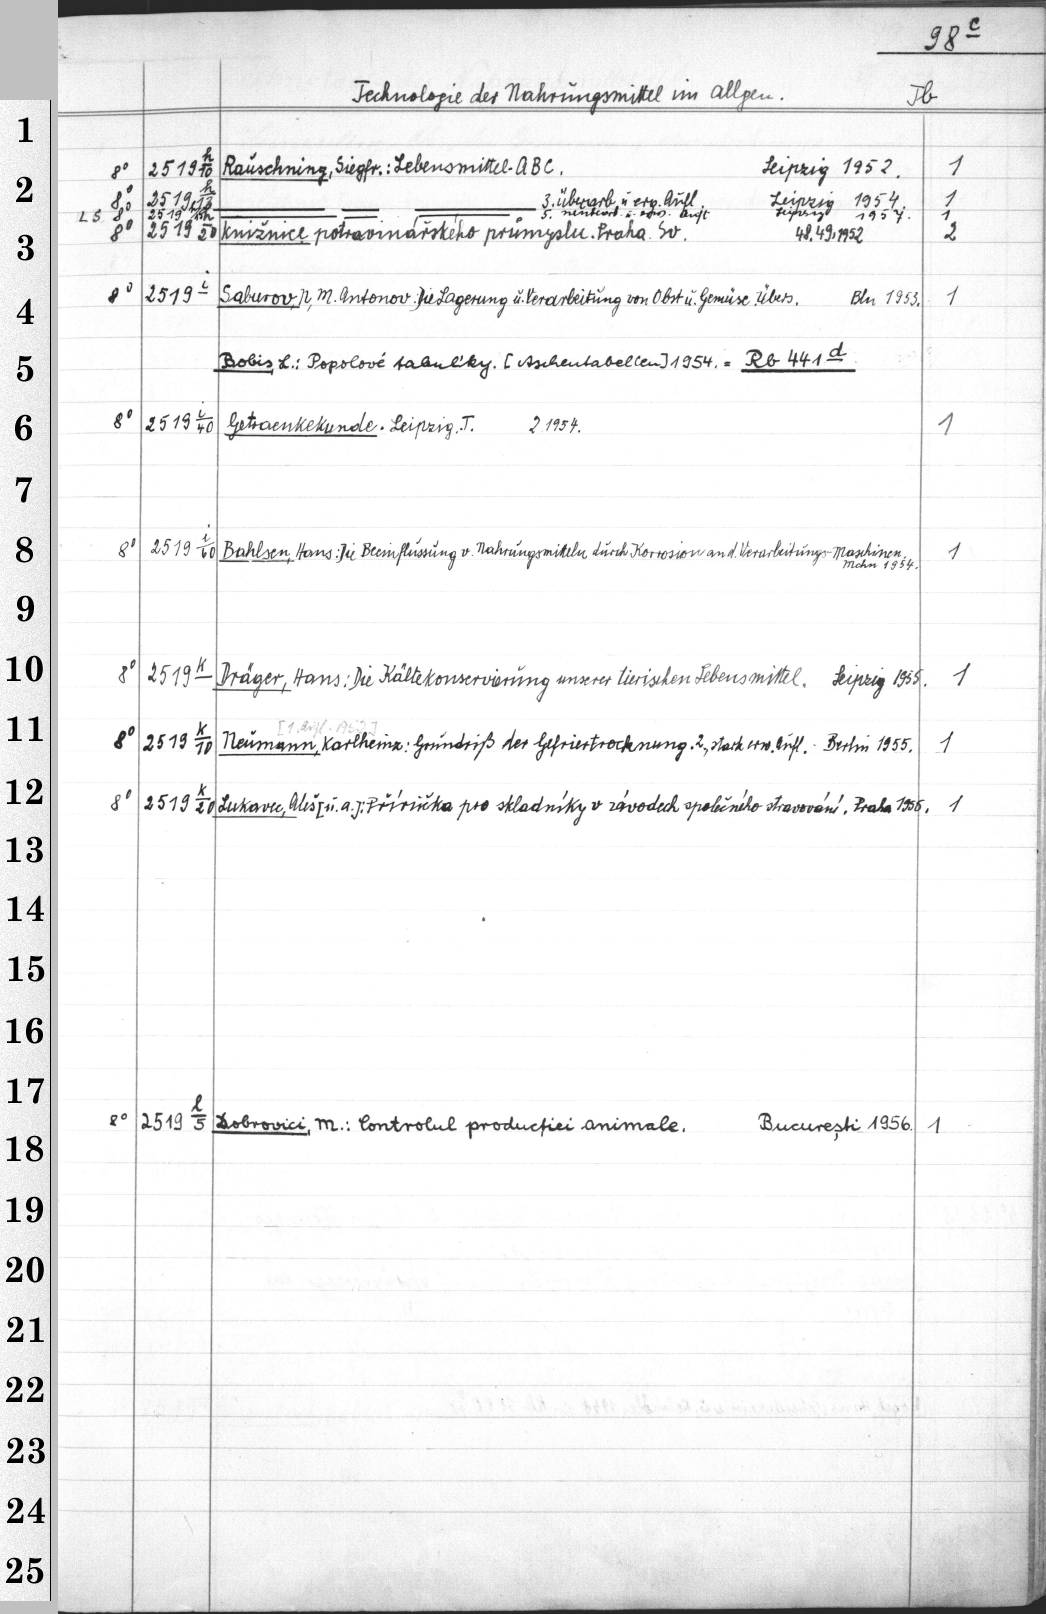 98 c
Technologie der Nahrungsmittel im Allgem. Tb
1
8° 2519 h/10 Rauschning, Siegfr.: Lebensmittel-ABC. Leipzig 1952. 1
2
8° 2519 h/12 3. überarb. u. erg. Aufl. Leipzig 1954. 1
LS 8° 2519 5. Aufl. Leipzig 1957. 1
8° 2519 h/20 Knižnice potravinářského průmyslu. Praha. Sv. 48.49.1952 2
3
8° 2519 i Saburov, N., M. Antonov: Die Lagerung u. Verarbeitung von Obst u. Gemüse. Übers. Bln 1953. 1
4
Bobis, L.: Popolové tabuľky. [Aschentabellen] 1954. = Rb 441 d
5
8° 2519 i/40 Getraenkekunde. Leipzig. T. 2 1954. 1
6
7
8° 2519 i/60 Bahlsen, Hans: Die Beeinflussung v. Nahrungsmitteln durch Korrosion an d. Verarbeitungs-Maschinen.
Mchn 1954. 1
8
9
8° 2519 k Dräger, Hans: Die Kältekonservierung unserer tierischen Lebensmittel. Leipzig 1955. 1
10
[1. Aufl. 1952]
8° 2519 k/10 Neumann, Karlheinz: Grundriß der Gefriertrocknung. 2., stark erw. Aufl. Berlin 1955. 1
11
8° 2519 k/20 Lukavec, Aleš [u. a.]: Příručka pro skladníky v závodech společného stravování. Praha 1956. 1
12
13
14
15
16
17
8° 2519 l/5 Dobrovici, M.: Controlul producţiei animale. Bucureşti 1956. 1
18
19
20
21
22
23
24
25